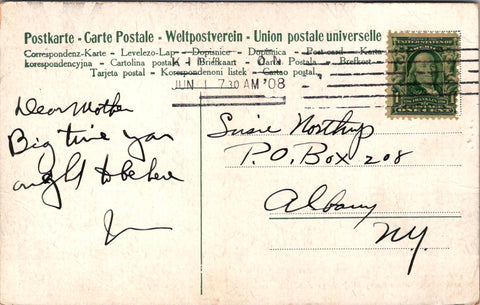 Postkarte - Carte Postale - Weltpostverein - Union postale universelle
Correspondenz-Karte - Levelezo-Lap - Dopisnice - Dopisnica - Post card - Karta
korespondencyjna - Cartolina postale - Briefkaart - Cartão Postala - Brefkort
Tarjeta postal - Korespondenoni listek - Cartao postal.
JUN 1 7 30 AM '08
Dear Mother
Big time you
ought to be here
Susie Northup
P.O. Box 208
Albany
N.Y.